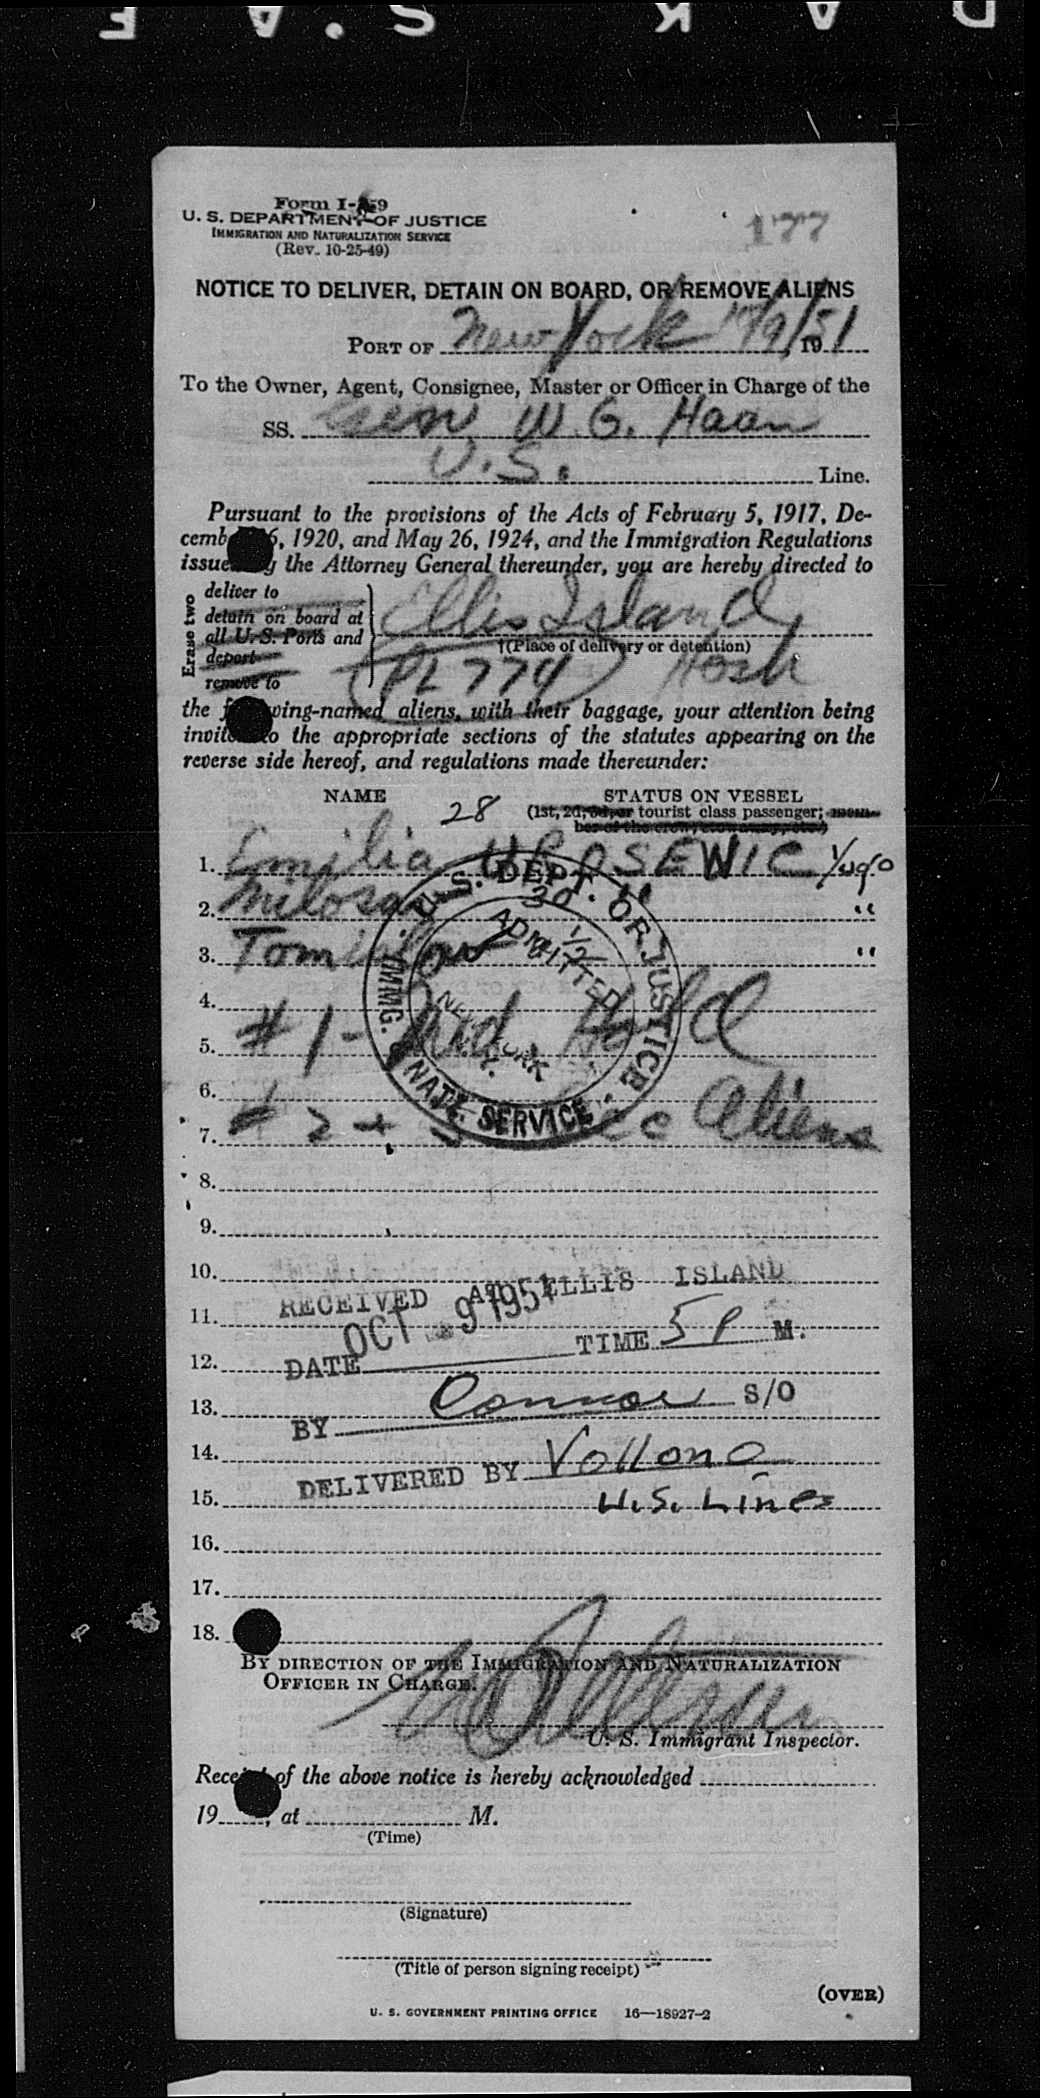 177
Form I-259
U. S. DEPARTMENT OF JUSTICE
IMMIGRATION AND NATURALIZATION SERVICE
(Rev. 10-25-49)
NOTICE TO DELIVER, DETAIN ON BOARD, OR REMOVE ALIENS
PORT OF New York 10/9/, 1951
To the Owner, Agent, Consignee, Master or Officer in Charge of the
SS. Gen W. G. Haan
U.S. Line.
Pursuant to the provisions of the Acts of February 5, 1917, De-
cember 26, 1920, and May 26, 1924, and the Immigration Regulations
issued by the Attorney General thereunder, you are hereby directed to
Erase two
deliver to
detain on board at
all U. S. Ports and
deport
remove to
Ellis Island
†(Place of delivery or detention)
(PL 774) Hosp
the following-named aliens, with their baggage, your attention being
invited to the appropriate sections of the statutes appearing on the
reverse side hereof, and regulations made thereunder:
NAME 28 STATUS ON VESSEL
(1st, 2d, 3d, or tourist class passenger; mem-
ber of the crew, stowaway, etc.)
1. Emilia UROSEWIC Yugo
2. Milosav 30 "
3. Tomislav 1/2 "
4.
5. #1 - Med. Hold
6.
7. #2 + 3 Acc Aliens
U. S. DEPT. OF JUSTICE
IMMG. & NATZ. SERVICE
ADMITTED
NEW YORK
N. Y.
8.
9.
10.
RECEIVED AT ELLIS ISLAND
11.
OCT 9 1951
12. DATE TIME 5 P M.
13. BY Connor S/O
14.
DELIVERED BY Vollono
15. U.S. Lines
16.
17.
18.
BY DIRECTION OF THE IMMIGRATION AND NATURALIZATION
OFFICER IN CHARGE.
U. S. Immigrant Inspector.
Receipt of the above notice is hereby acknowledged
19, at M.
(Time)
(Signature)
(Title of person signing receipt)
(OVER)
U. S. GOVERNMENT PRINTING OFFICE 16—18927-2